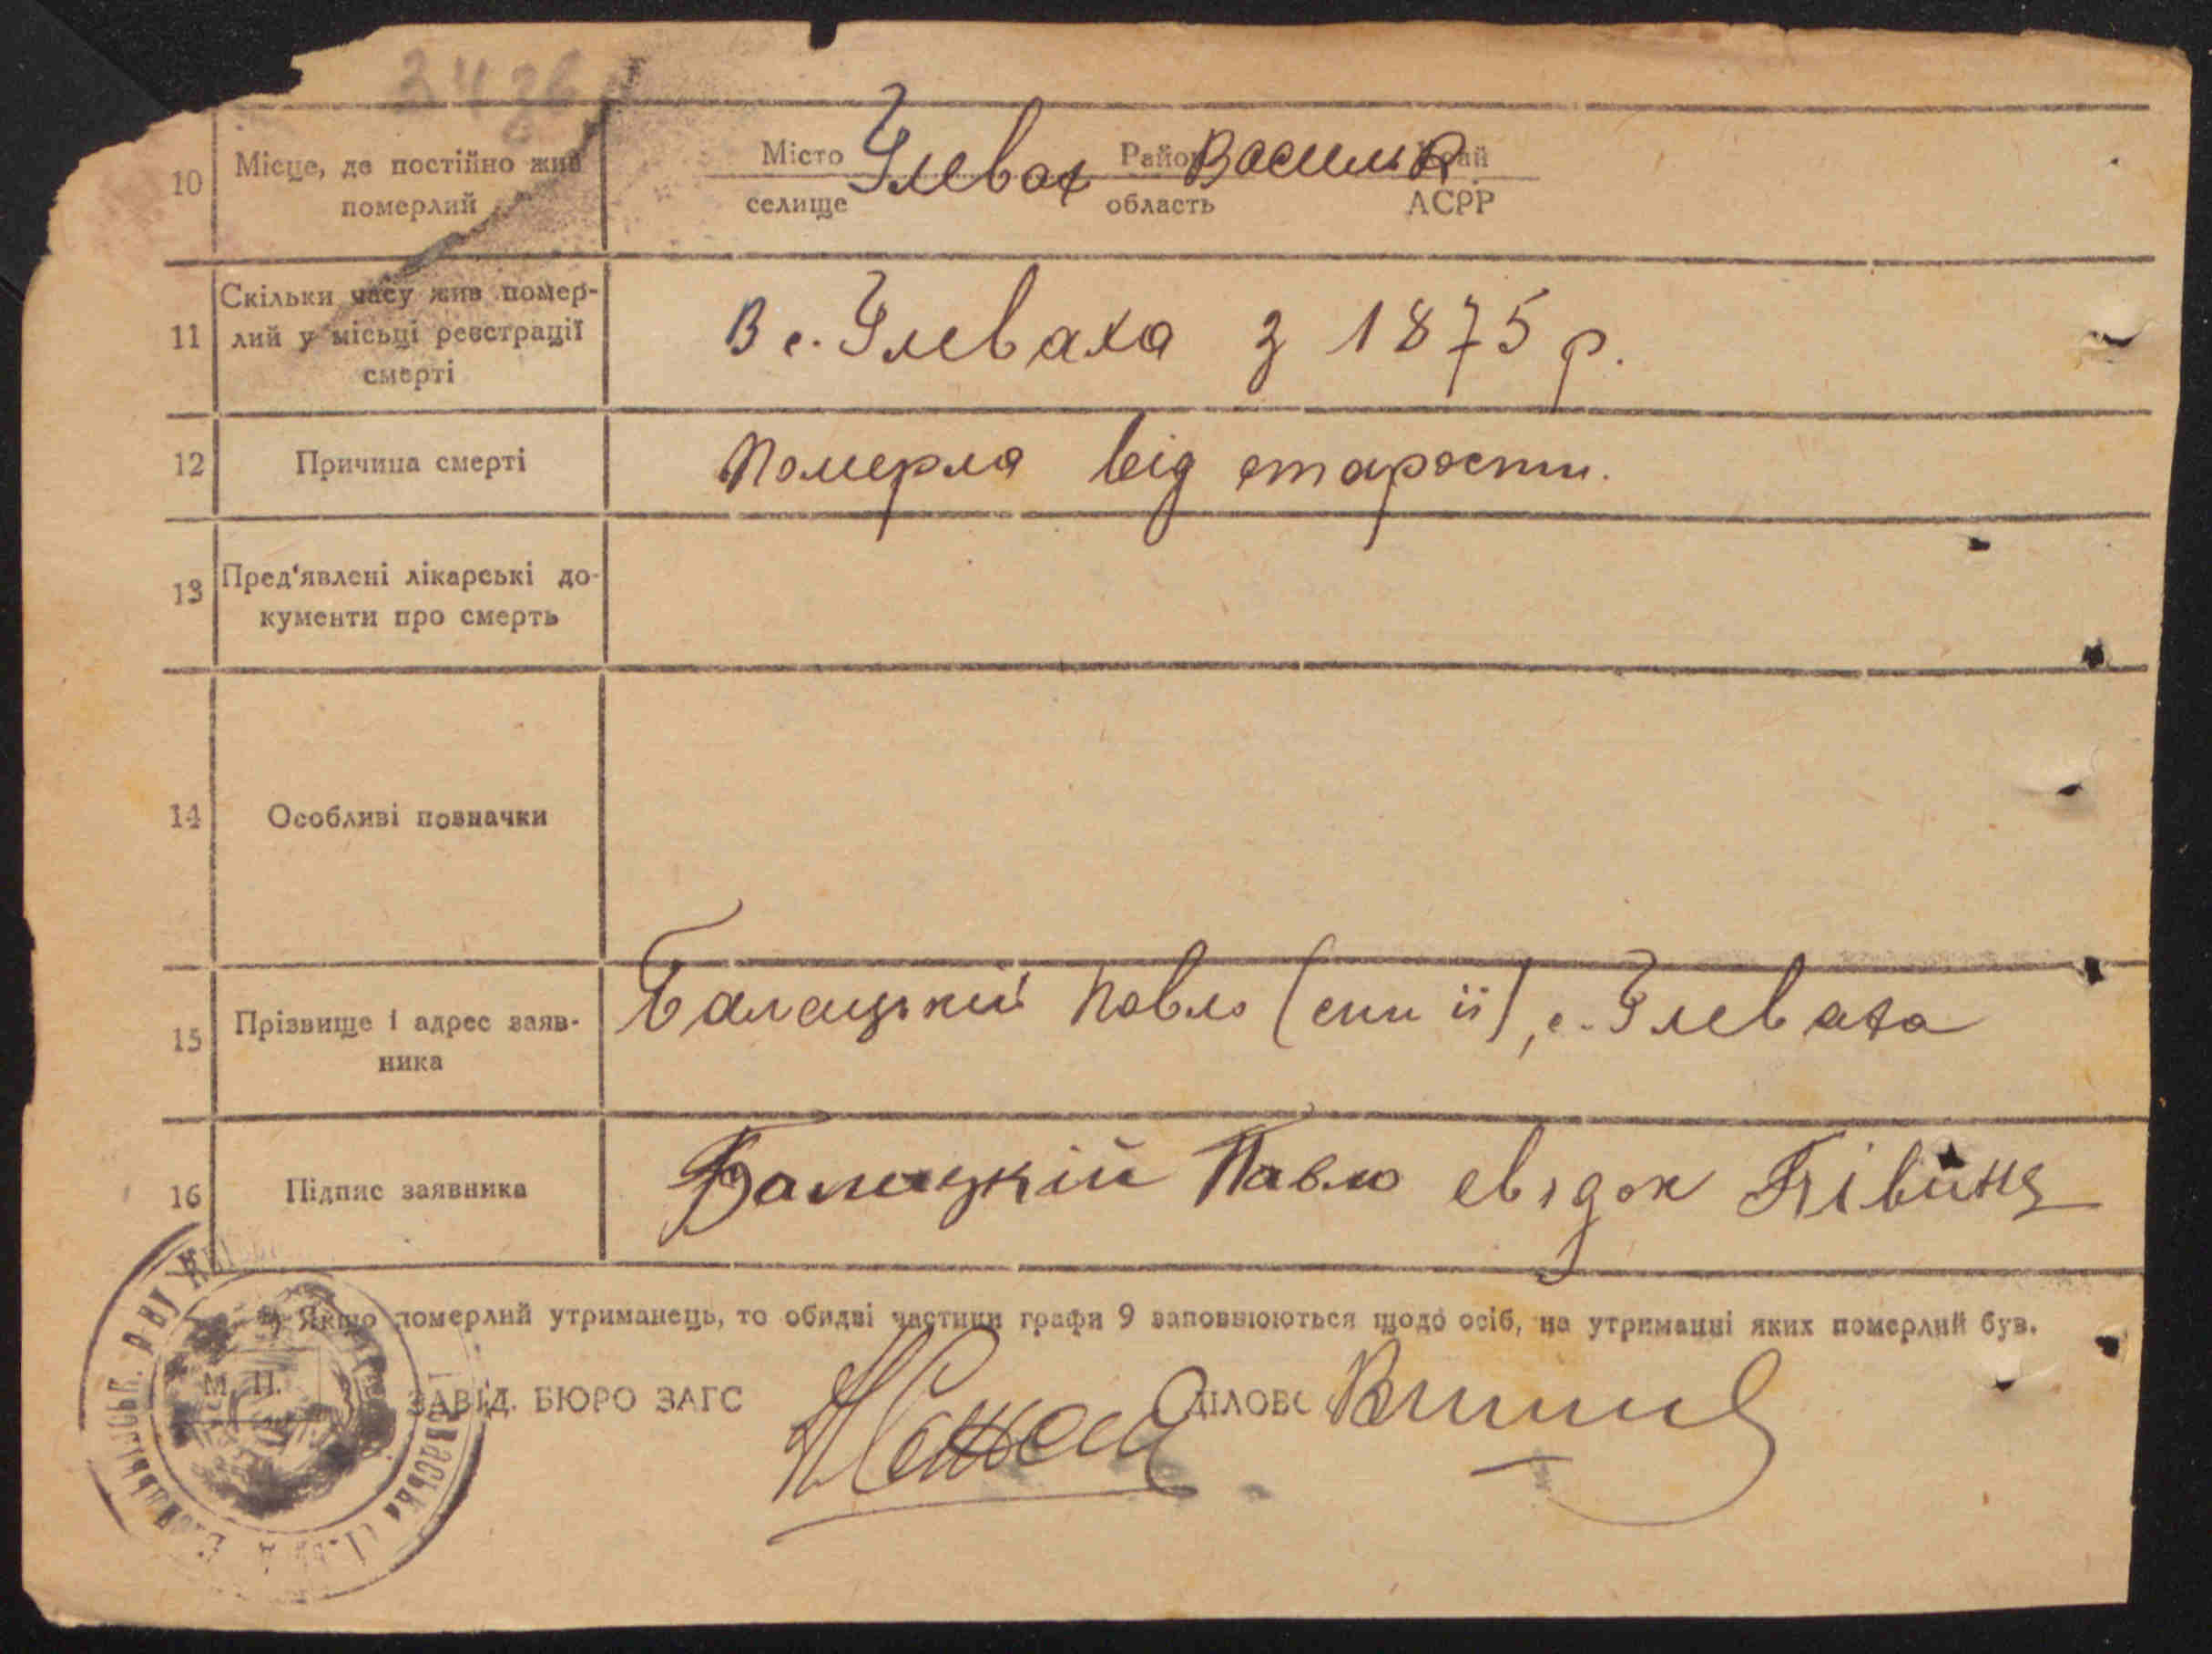 10 Місце, де постійно жив
померлий
Місто Глевах Район Васильк. Край
селище область АСРР
11 Скільки часу жив помер-
лий у місьці реєстрації
смерті
В с. Глеваха з 1875 р.
12 Причина смерті
Померла від старости.
13 Пред'явлені лікарські до-
кументи про смерть
14 Особливі позначки
15 Прізвище і адрес заяв-
ника
Балацький Павло (син її), с. Глеваха
16 Підпис заявника
Балицкій Павло свідок
*) Якщо померлий утриманець, то обидві частини графи 9 заповнюються щодо осіб, на утриманні яких померлий був.
М. П.
ЗАВІД. БЮРО ЗАГС ДІЛОВ